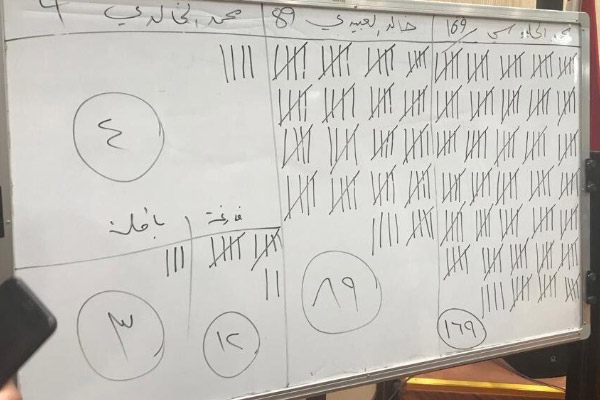 محمد الحلبوسي 169
خالد العبيدي 89
محمد الخالدي 4
١٦٩
٨٩
٤
فارغة
باطلة
١٢
٣